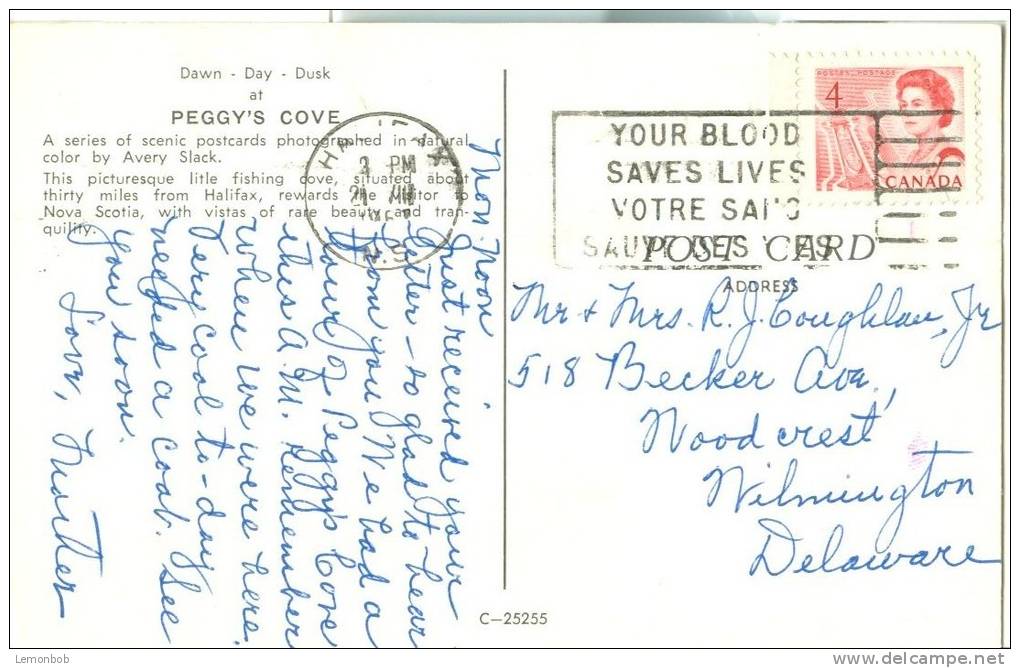 Dawn - Day - Dusk
at
PEGGY'S COVE
A series of scenic postcards photographed in natural
color by Avery Slack.
This picturesque litle fishing cove, situated about
thirty miles from Halifax, rewards the visitor to
Nova Scotia, with vistas of rare beauty and tran-
quility.
3 PM
N.S.
Mon. Noon
Just received your
letter - so glad to hear
from you. We had a
tour of Peggy's Cove
this A.M. Remember
when we were here.
Very cool to-day
needed a coat. See
you soon.
Love, Mother
C-25255
POSTES POSTAGE
4
CANADA
YOUR BLOOD
SAVES LIVES
VOTRE SANG
SAUVE DES VIES
POST CARD
ADDRESS
Mr & Mrs. R. J. Coughlan, Jr
518 Becker Ave,
Woodcrest
Wilmington
Delaware
Lemonbob
www.delcampe.net